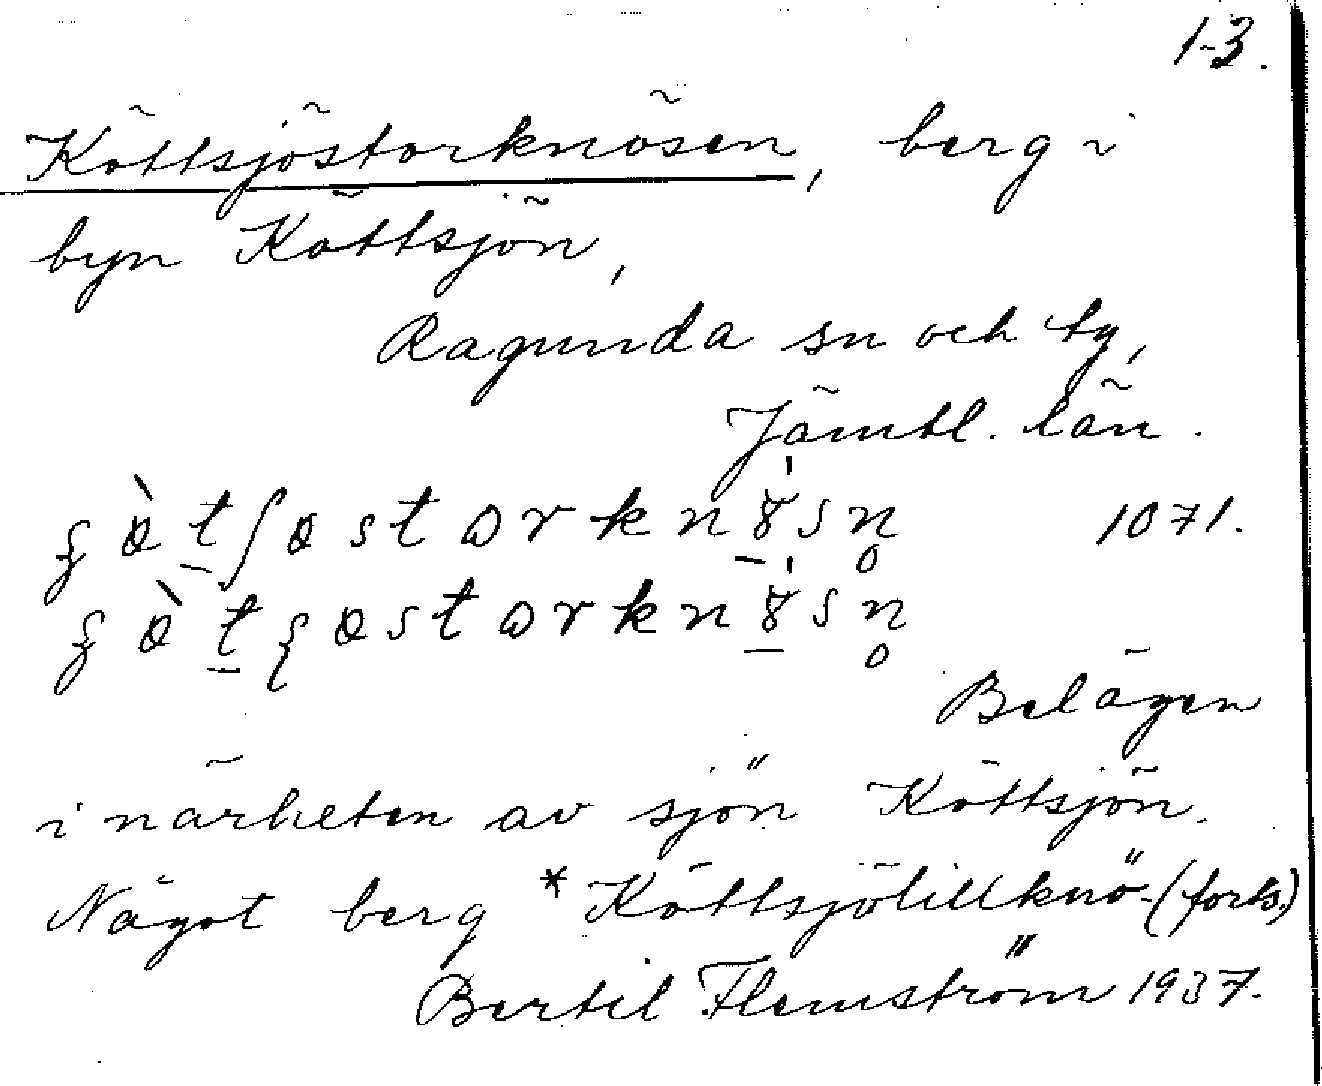 1-3.
Köttsjöstorknösen, berg i
byn Köttsjön,
Ragunda sn och tg,
Jämtl. län.
1071.
Belägen
i närheten av sjön Köttsjön.
Något berg *Köttsjölillknö-(forts.)
Bertil Flemström 1937.